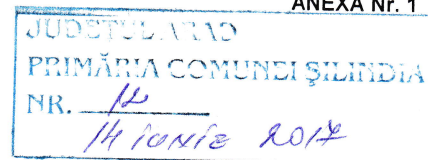 ANEXA Nr. 1
JUDEȚUL ARAD
PRIMĂRIA COMUNEI ȘILINDIA
NR. 12
14 iunie 2017